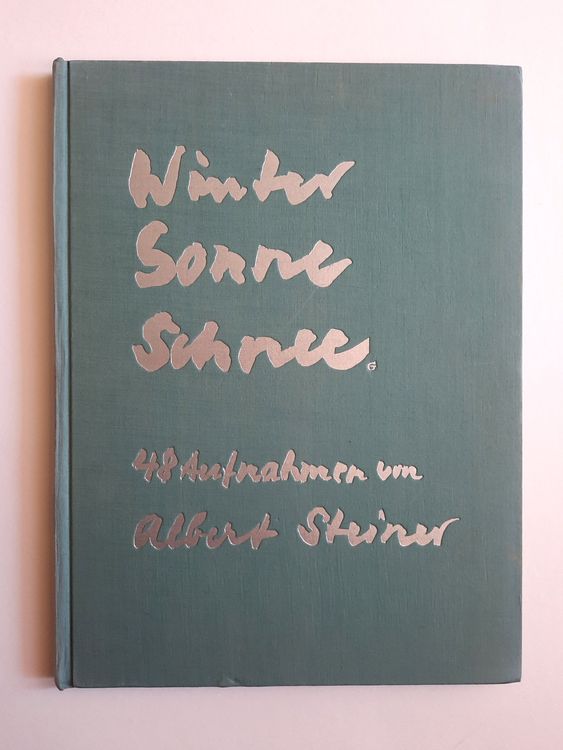 Winter
Sonne
Schnee.
G
48 Aufnahmen von
Albert Steiner